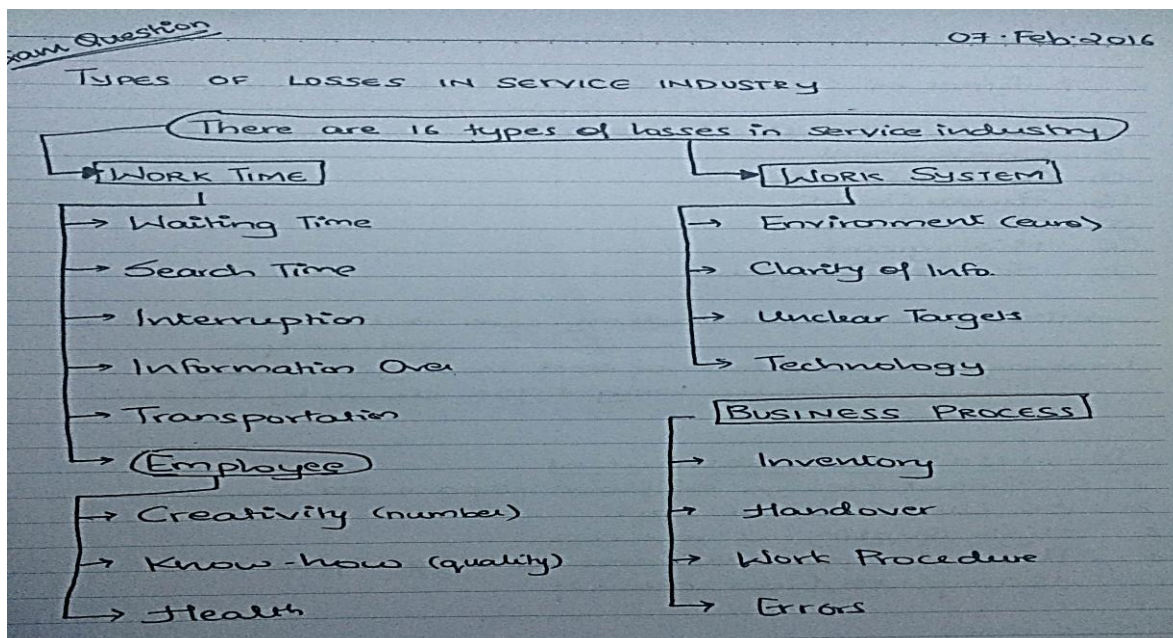 Exam Question
07.Feb.2016
TYPES OF LOSSES IN SERVICE INDUSTRY
There are 16 types of losses in service industry
WORK TIME
Waiting Time
Search Time
Interruption
Information Over
Transportation
Employee
Creativity (number)
Know-how (quality)
Health
WORK SYSTEM
Environment (euro)
Clarity of Info.
Unclear Targets
Technology
BUSINESS PROCESS
Inventory
Handover
Work Procedure
Errors